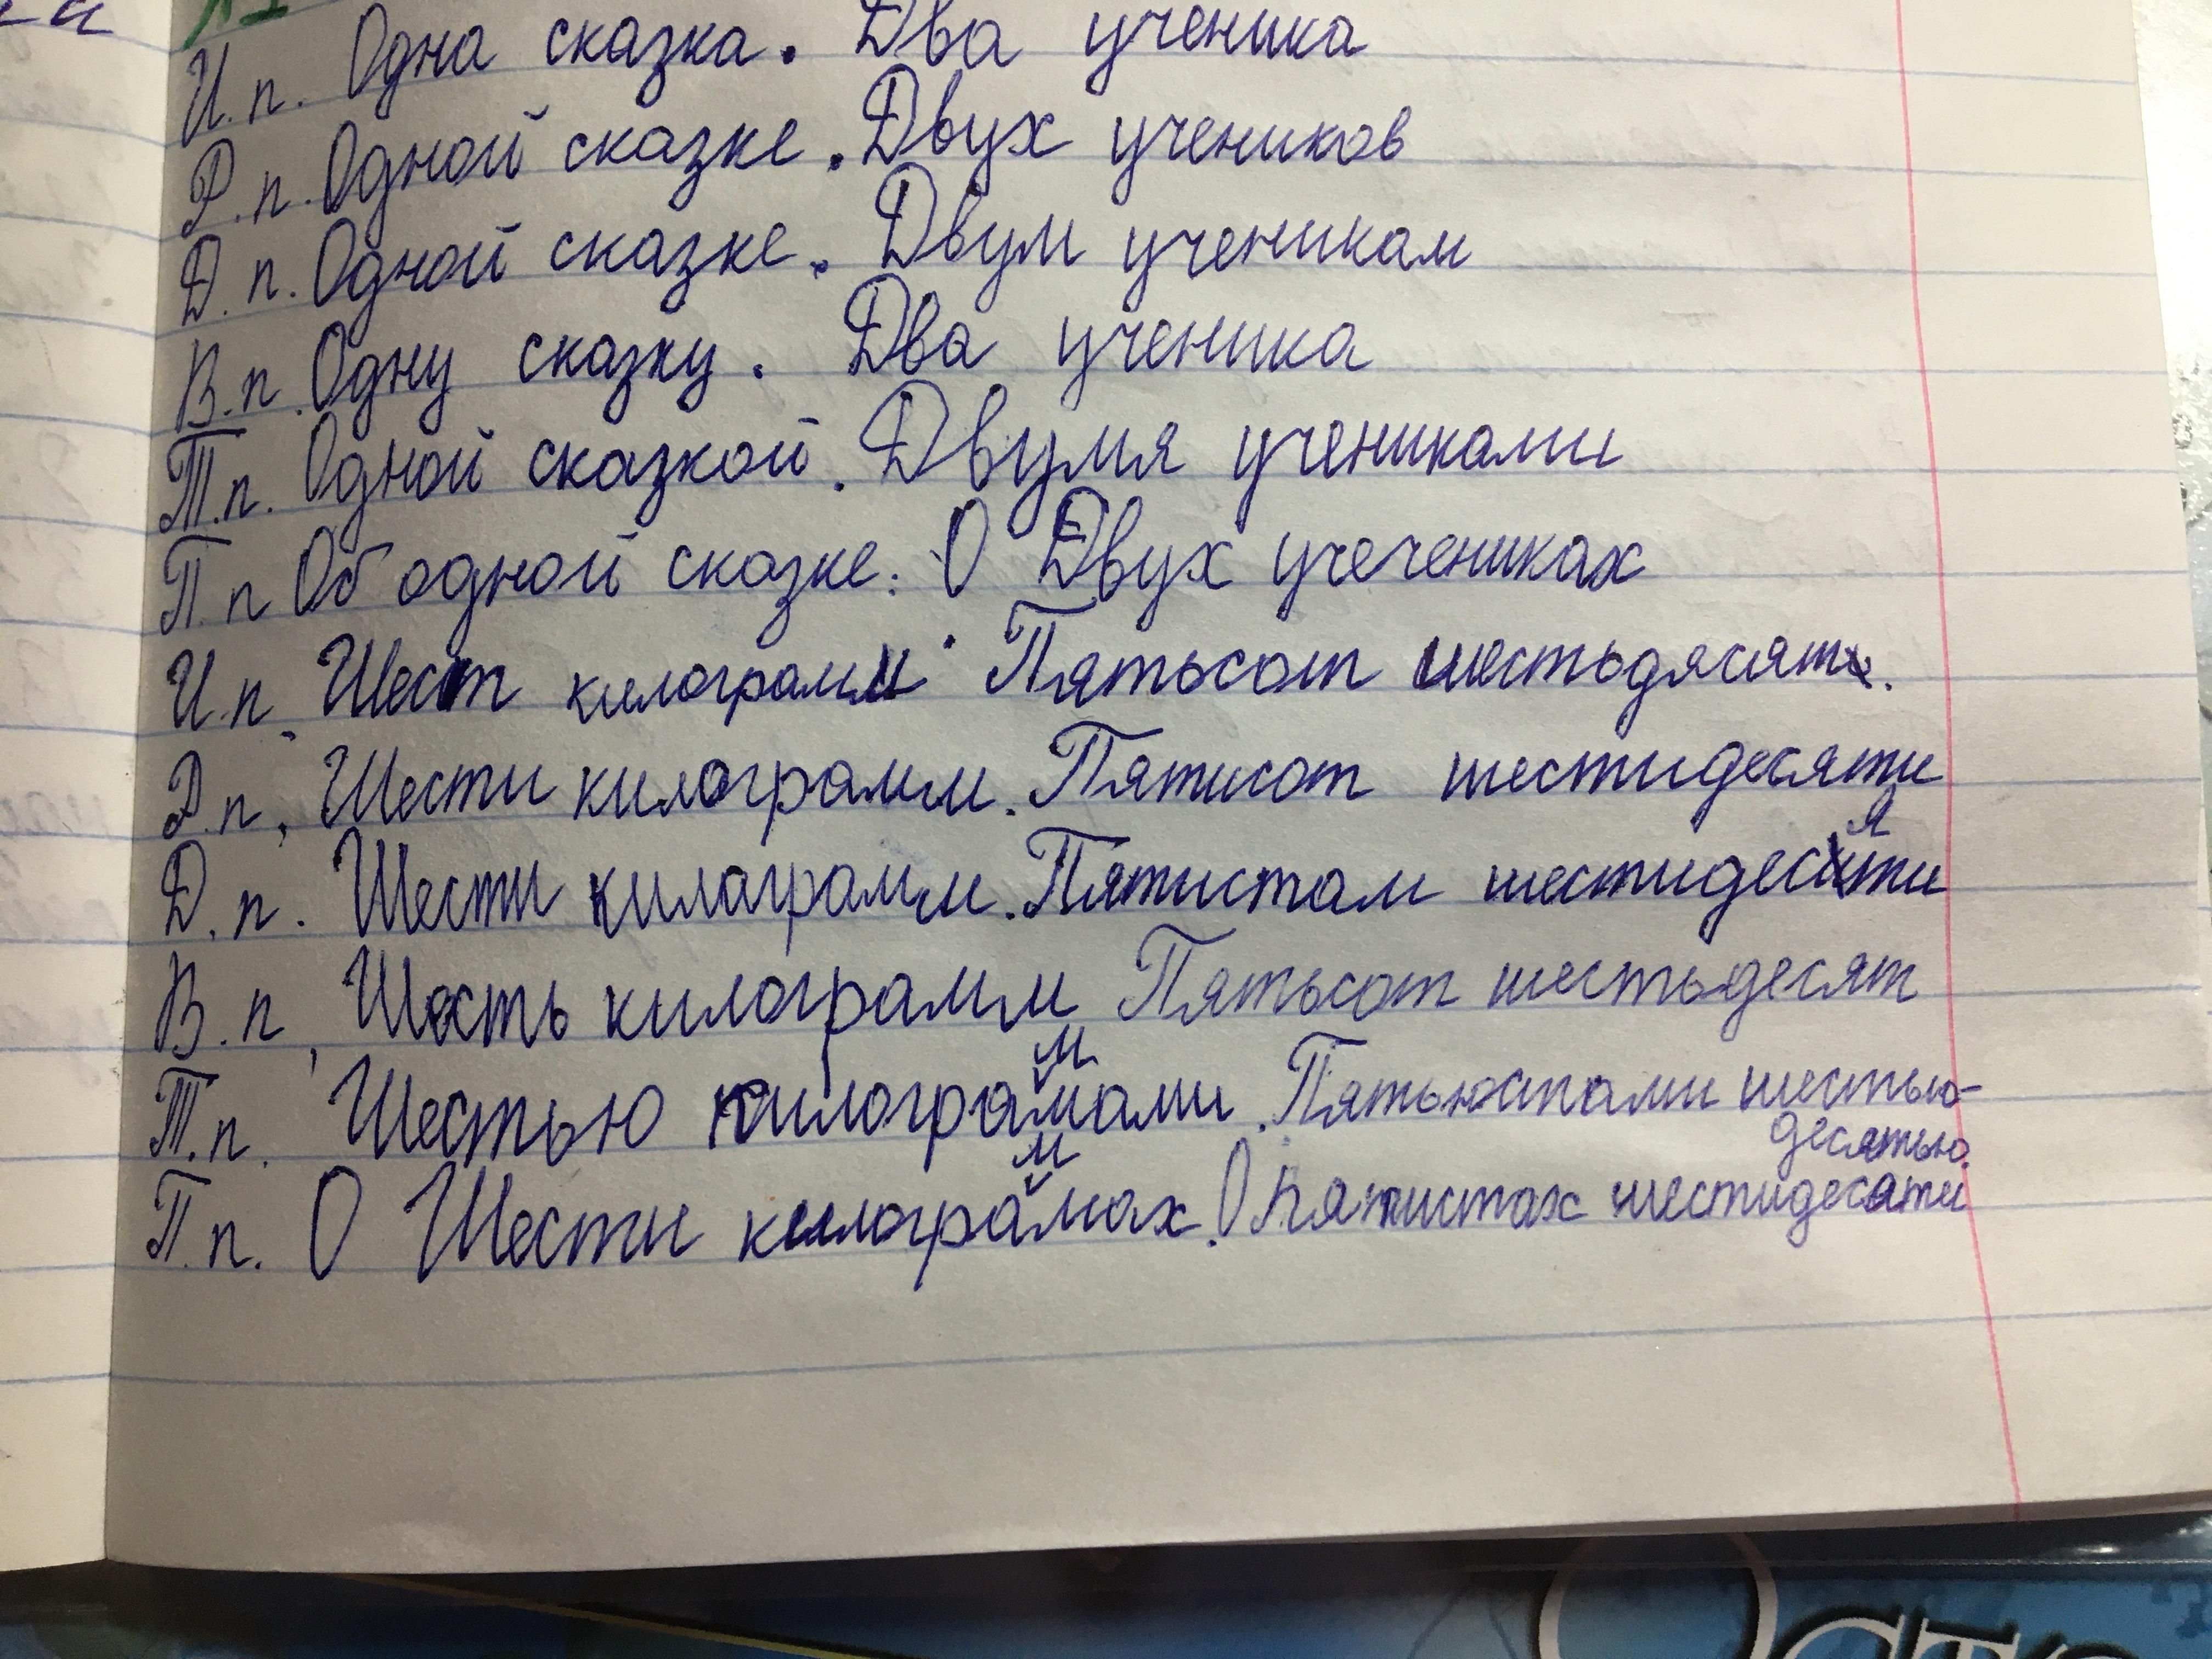 И.п. Одна сказка. Два ученика
Р.п. Одной сказке. Двух учеников
Д.п. Одной сказке. Двум ученикам
В.п. Одну сказку. Два ученика
Т.п. Одной сказкой. Двумя учениками
П.п Об одной сказке. О Двух учечениках
И.п. Шест килограмм. Пятьсот шестьдясят.
Р.п. Шести килограмм. Пятисот шестидесяти
Д.п. Шести килаграмм. Пятистам шестидесяти
В.п. Шесть килограмм Пятьсот шестьдесят
Т.п. Шестью килограммами. Пятьюстами шестью-
десятью.
П.п. О Шести килограммах. О пятистах шестидесяти